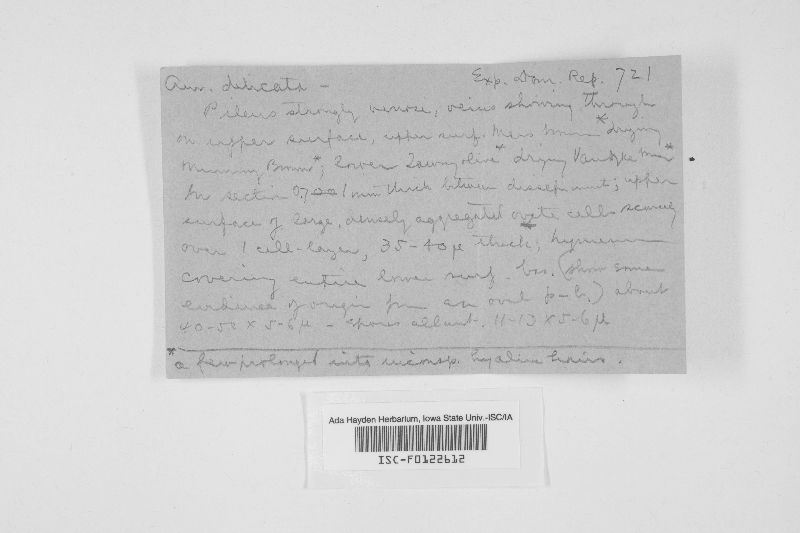 Aur. delicata - Exp. Dom. Rep. 721
Pileus strongly venose, veins showing through
on upper surface, upper surf. Mars brown* drying
Mummy Brown*; lower Tawny olive* drying Vandyke
In section 0.7 1 mm thick between dissepiments; upper
surface of large, densely aggregated ovate cells scarcely
over 1 cell-layer, 35-40µ thick; hymenium
covering entire lower surf. bas. (show some
evidence of origin from an oval p-b.) about
40-50 x 5-6µ - spores allant. 11-13 x 5-6µ
* a few prolonged into inconsp. hyaline hairs.
Ada Hayden Herbarium, Iowa State Univ.-ISC/IA
ISC-F0122612